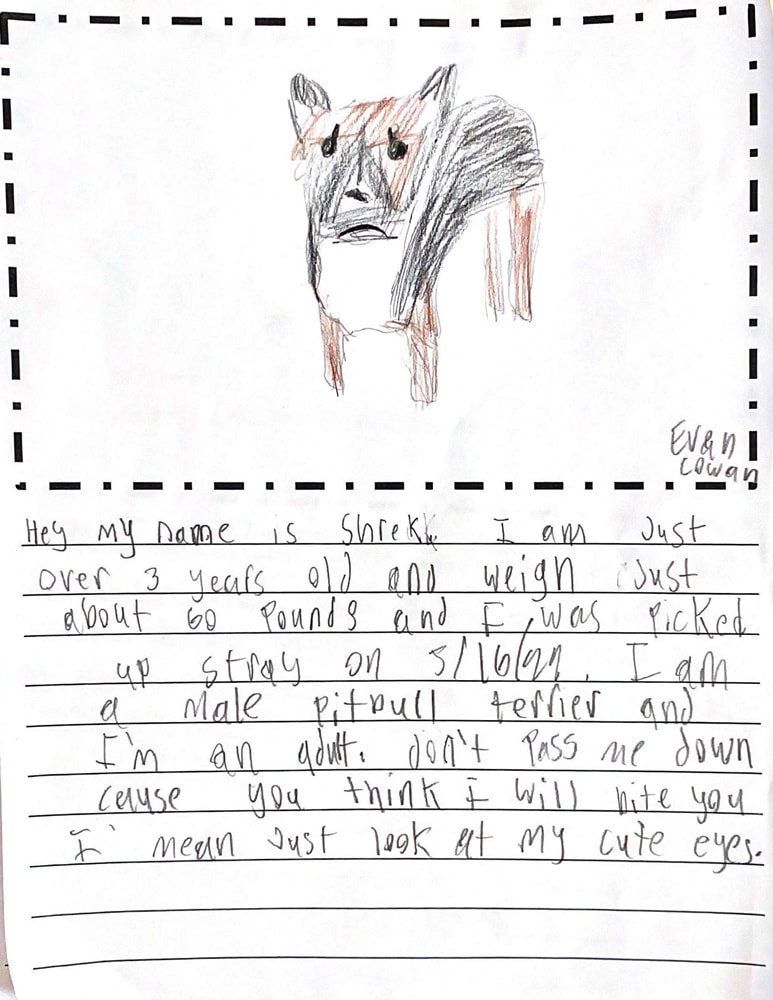 Evan
Cowan
Hey My name is Shrek I am Just
over 3 years old and weigh Just
about 60 Pounds and I was Picked
up stray on 3/16/22. I am
a Male pitbull terrier and
I'm an adult. don't Pass me down
cause you think I will bite you
I' mean Just look at My cute eyes.